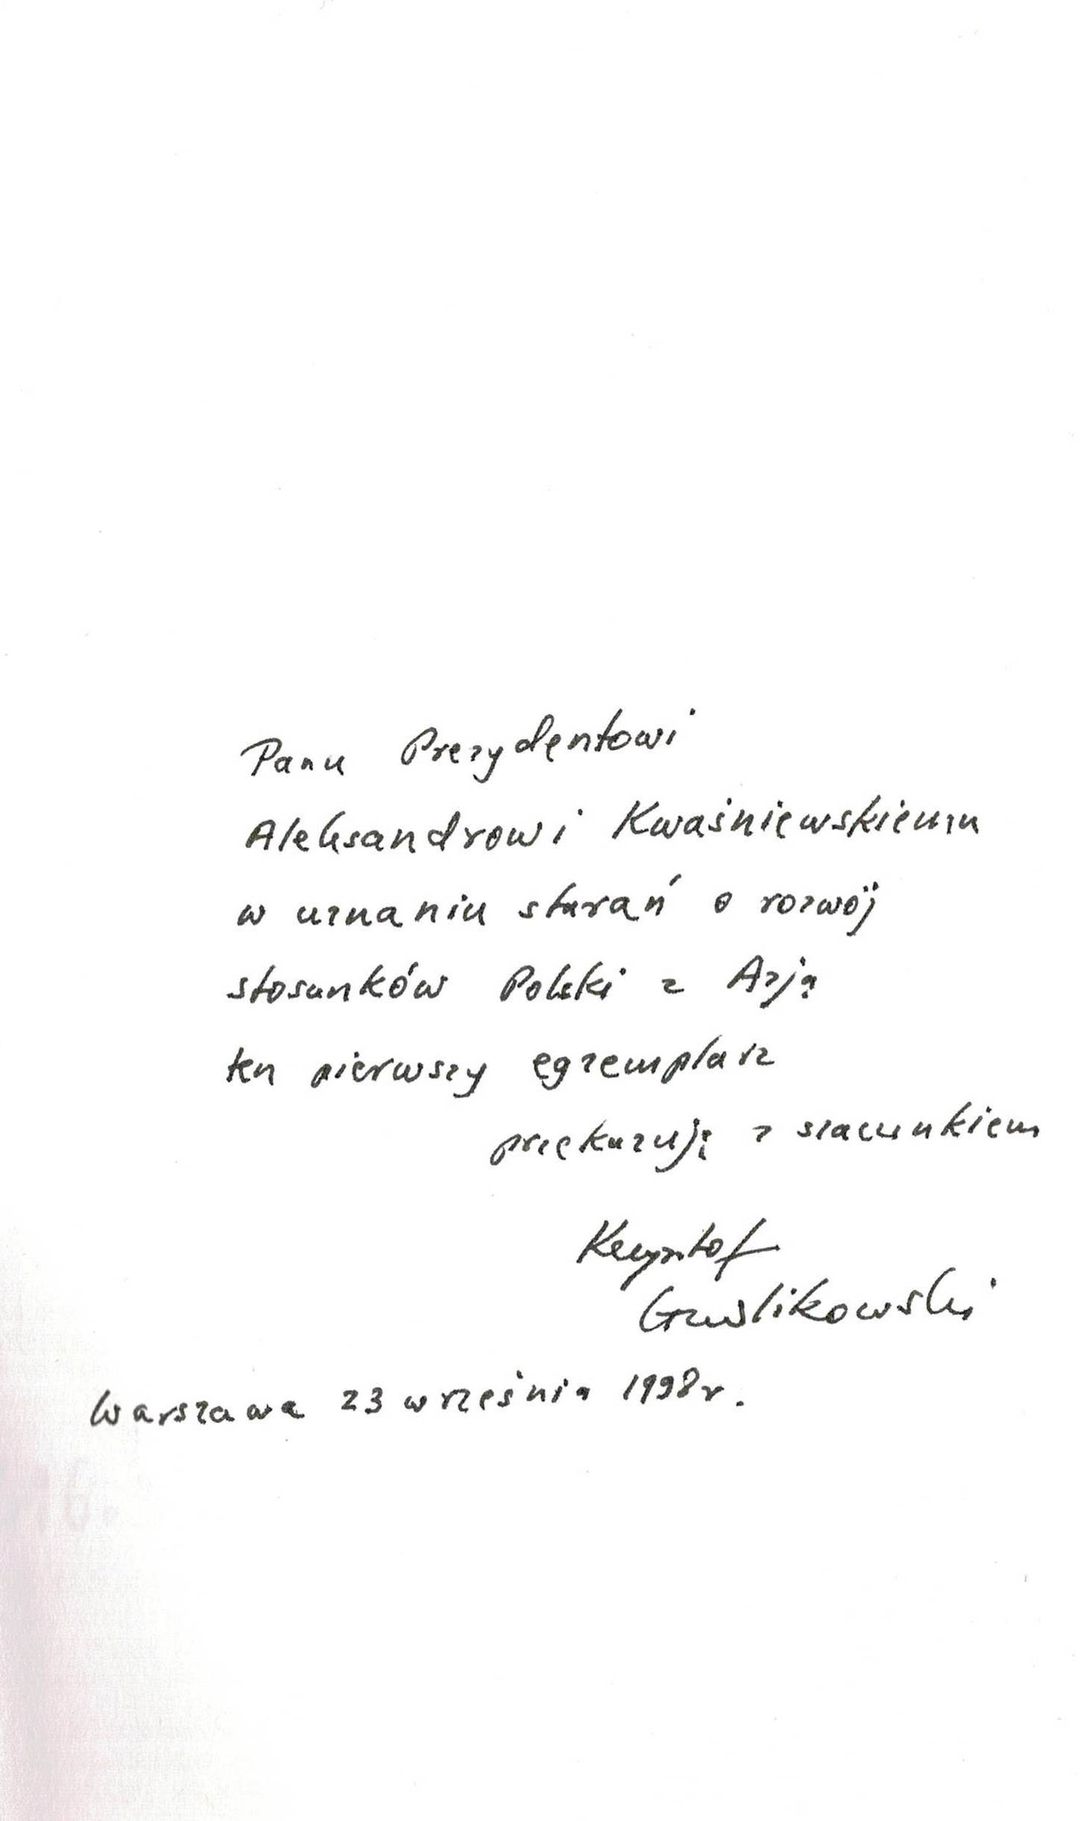 Panu Prezydentowi
Aleksandrowi Kwaśniewskiemu
w uznaniu starań o rozwój
stosunków Polski z Azją
ten pierwszy egzemplarz
przekazuję z szacunkiem
Krzysztof
Gawlikowski
Warszawa 23 września 1998r.